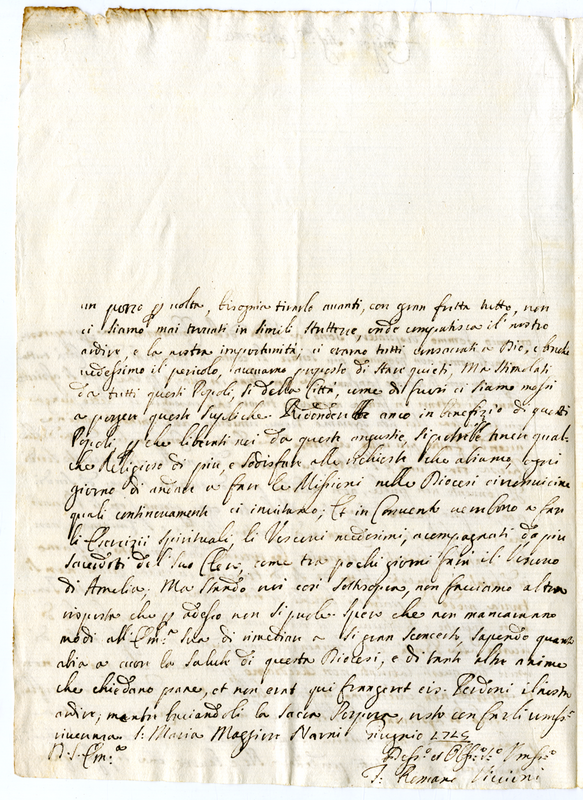 un pezzo p volta, bisognia tirarlo avanti, con gran fretta tutto, non
ci siamo mai trovati in simili strettezze, onde compatisca il nostro
ardire, e la nostra importunità; ci eramo tutti consacrati a Dio, e benche
vedessimo il pericolo, havevamo proposto di stare quieti, Ma stimolati
da tutti questi Popoli, si della Città, come di fuori ci siamo mossi
a porger queste suppliche. Ridonderebbe anco in benefizio di questi
Popoli, p che liberati noi da queste angustie, si potrebbe tenere qual-
che Religioso di piu, e sodisfare alle richieste che abiamo, ogni
giorno di andare a fare le Missioni nelle Diocesi circonvicine
quali continovamente ci invitano; Et in Convento vembono a fare
li Esercizii spirituali, li Vescovi medesimi, acompagnati da piu
sacerdoti del suo Clero, come tra pochi giorni farà il Vescovo
di Amelia. Ma stando noi così sottosopra, non facciamo altra
risposta che p adesso non si puole. Spero che non mancaranno
modi all' Em.ᵃ Sua di rimediare a si gran sconcerto, sapendo quanto
abia a cuore la salute di questa Diocesi, e di tante altre anime
che chiedano pane, et non erat qui frangeret eis. Perdoni il nostro
ardire, mentre baciandoli la Sacra Porpora, resto con farli umiss.ᵃ
riverenza S: Maria Maggiore Narni giugnio 1725
D. V. Em.ᵃ
Devs.º et Obs.º Umss.º
F. Romano